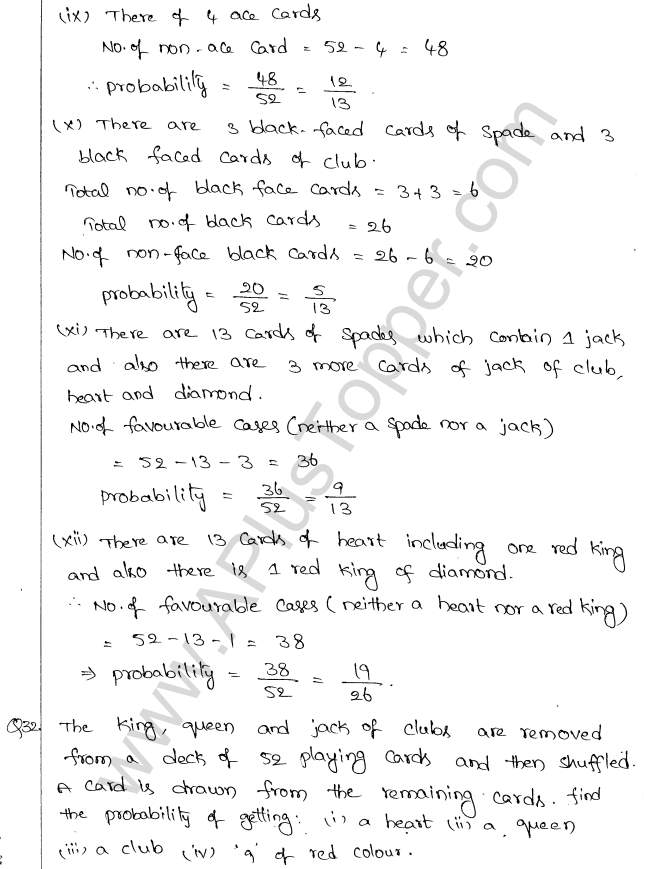 (ix) There of 4 ace cards
No. of non-ace card = 52 - 4 = 48
∴ probability = 48/52 = 12/13.
(x) There are 3 black-faced cards of spade and 3
black faced cards of club.
Total no. of black face cards = 3 + 3 = 6
Total no. of black cards = 26
No. of non-face black cards = 26 - 6 = 20
probability = 20/52 = 5/13
(xi) There are 13 cards of spades which contain 1 jack
and also there are 3 more cards of jack of club,
heart and diamond.
No. of favourable cases (neither a spade nor a jack)
= 52 - 13 - 3 = 36
probability = 36/52 = 9/13
(xii) There are 13 cards of heart including one red king
and also there is 1 red king of diamond.
∴ No. of favourable cases (neither a heart nor a red king)
= 52 - 13 - 1 = 38
⇒ probability = 38/52 = 19/26.
Q32. The king, queen and jack of clubs are removed
from a deck of 52 playing cards and then shuffled.
A card is drawn from the remaining cards. find
the probability of getting: (i) a heart (ii) a queen
(iii) a club (iv) '9' of red colour.
www.APlusTopper.com